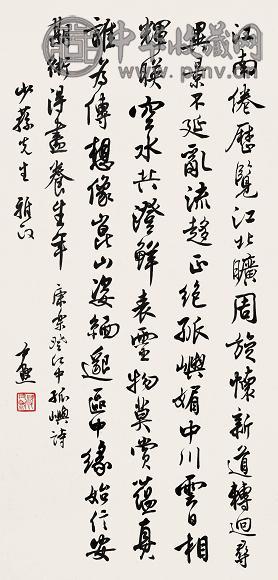 江南倦歷覽江北曠周旋懷新道轉迥尋
異景不延亂流趨正絕孤嶼媚中川雲日相
輝暎空水共澄鮮表靈物莫賞蘊真
誰為傳想像崑山姿緬邈區中緣始信安
期術得盡養生年 康樂登江中孤嶼詩
少蓀先生雅政
尹默
中华收藏网
www.pmv.cn